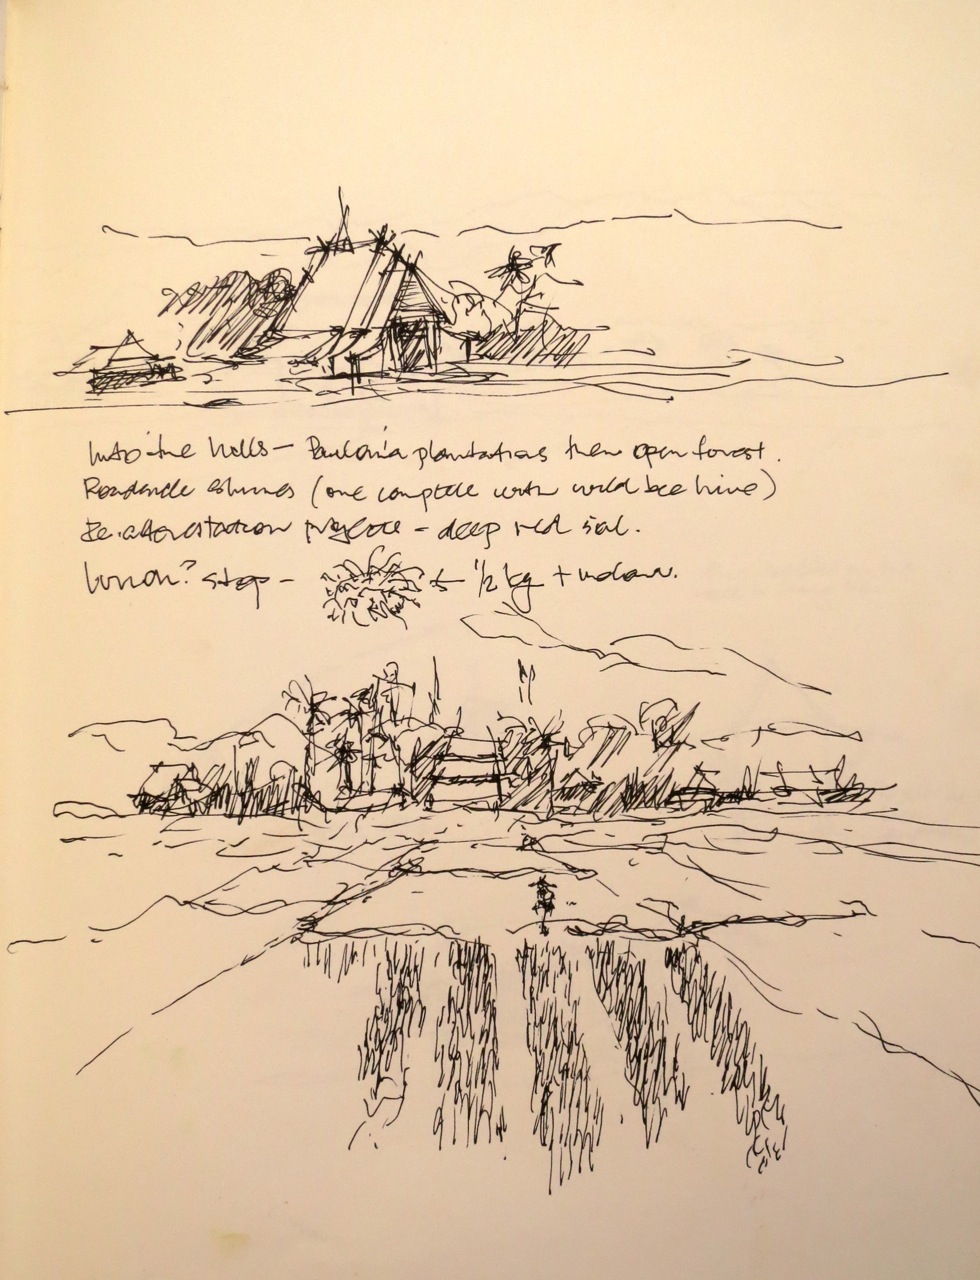 Into the hills - Paulonia plantations then open forest.
Roadside shrines (one complete with wild bee hive)
Re.afforestation projects - deep red soil.
? stop - ← 1/2 kg +